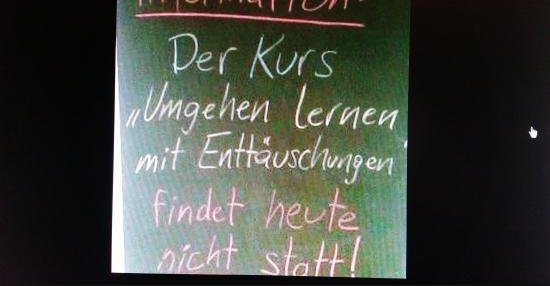 Information
Der Kurs
„Umgehen lernen
mit Enttäuschungen“
findet heute
nicht statt!